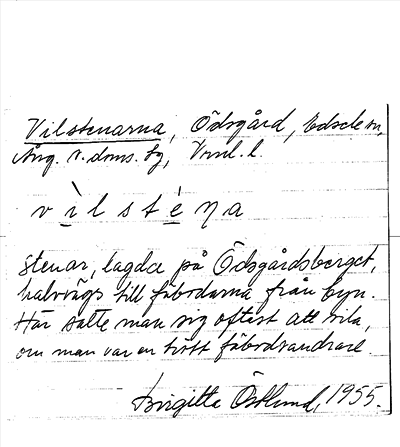 Vilstenarna, Ödsgård, Edsele sn,
Ång. v. doms. sg, Vrnl. l.
v ì l s t è ŋ a
stenar, lagda på Ödsgårdsberget,
halvvägs till fäbodarna från byn.
Här satte man sig oftast att vila,
om man var en trött fäbodvandrare
Birgitte Östlund, 1955.